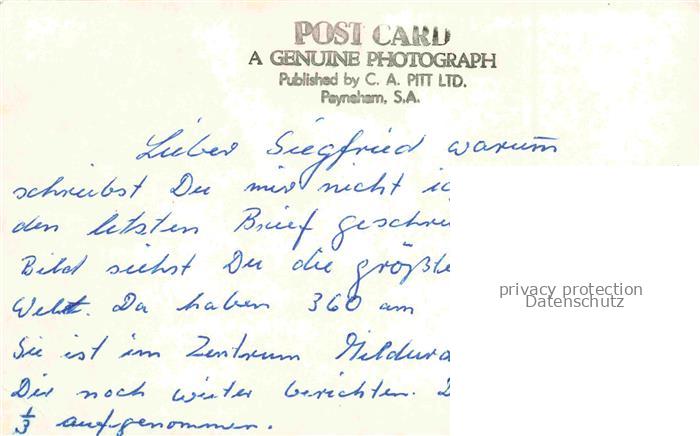 POST CARD
A GENUINE PHOTOGRAPH
Published by C. A. PITT LTD.
Payneham, S.A.
Lieber Siegfried warum
schreibst Du mir nicht
den letzten Brief geschri
Bild siehst Du die größte
Welt. Da haben 360 am
Sie ist im Zentrum Mildura
Dir noch weiter berichten.
1/3 aufgenommen.
privacy protection
Datenschutz